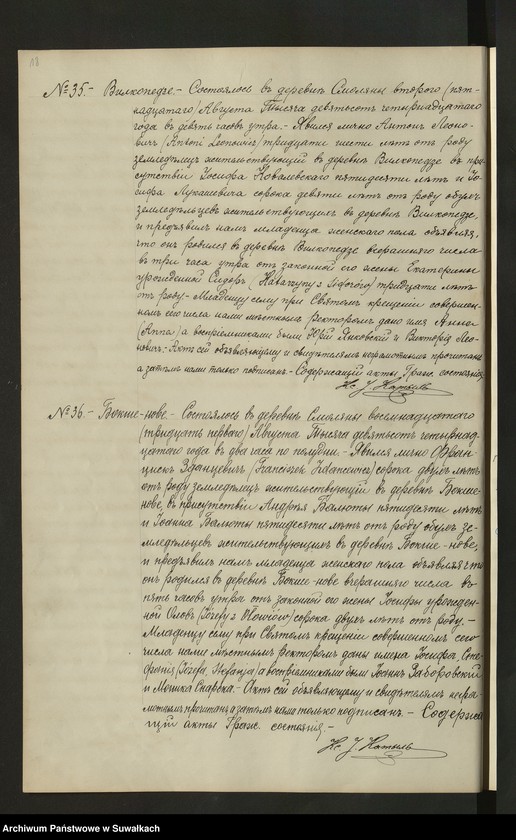 118
№35.- Вилкопедзе.- Состоялось въ деревнѣ Смоляны второго (пят-
надцатаго) Августа Тысяча девятьсотъ четырнадцатаго
года въ девять часовъ утра.- Явился лично Антонъ Леоно-
вичъ (Antoni Leonowicz) тридцати шести лѣтъ отъ роду
земледѣлецъ жительствующій въ деревнѣ Вилкопедзе въ при-
сутствіи Іосифа Ковалевскаго пятидесяти лѣтъ и Іо-
сифа Лукашевича сорока девяти лѣтъ отъ роду обоихъ
земледѣльцевъ жительствующихъ въ деревнѣ Вилкопедзе,
и предъявилъ намъ младенца женскаго пола объявляя,
что онъ родился въ деревнѣ Вилкопедзе вчерашняго числа
въ три часа утра отъ законной его жены Екатерины
урожденной Сидоръ, тридцати лѣтъ
отъ роду.- Младенцу сему при Святомъ крещеніи совершен-
номъ сего числа нами мѣстнымъ Ректоромъ дано имя Анна
(Anna) а воспріемниками были Юрій Янковскій и Викторія Лео-
новичъ.- Актъ сей объявляющему и свидѣтелямъ неграмотнымъ прочитанъ
а затѣмъ нами только подписанъ.- Содержащій акты Граж. состоянія
Кс. J.
№36.- Бокше-нове.- Состоялось въ деревнѣ Смоляны восемнадцатаго
(тридцать перваго) Августа Тысяча девятьсотъ четырнад-
цатаго года въ два часа по полудни.- Явился лично Фран-
цискъ Зданцевичъ (Franciszek Zdancewicz) сорока двухъ лѣтъ
отъ роду земледѣлецъ жительствующій въ деревнѣ Бокше-
нове, въ присутствіи Андрея Балюты пятидесяти лѣтъ
и Іоанна Балюты пятидесяти лѣтъ отъ роду обоихъ зе-
мледѣльцевъ жительствующихъ въ деревнѣ Бокше-нове,
и предъявилъ намъ младенца женскаго пола объявляя что
онъ родился въ деревнѣ Бокше-нове вчерашняго числа въ
пять часовъ утра отъ законной его жены Іосифы урожден-
ной Оловъ (Józefy z) сорока двухъ лѣтъ отъ роду.-
Младенцу сему при Святомъ крещеніи совершенномъ сего
числа нами мѣстнымъ Ректоромъ даны имена Іосифа, Сте-
фанія (Józefa, Stefanja) а воспріемниками были Іоаннъ Заборовскій
и Моника Скарбка.- Актъ сей объявляющему и свидѣтелямъ негра-
мотнымъ прочитанъ а затѣмъ нами только подписанъ.- Содержа-
щій акты Граж. состоянія.-
Кс. J.
Archiwum Państwowe w Suwałkach